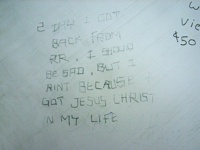 2 DAY I GOT
BACK FROM
R.R., I SHOULD
BE SAD, BUT I
AINT BECAUSE I
GOT JESUS CHRIST
N MY LIFE
W
Vie
$50